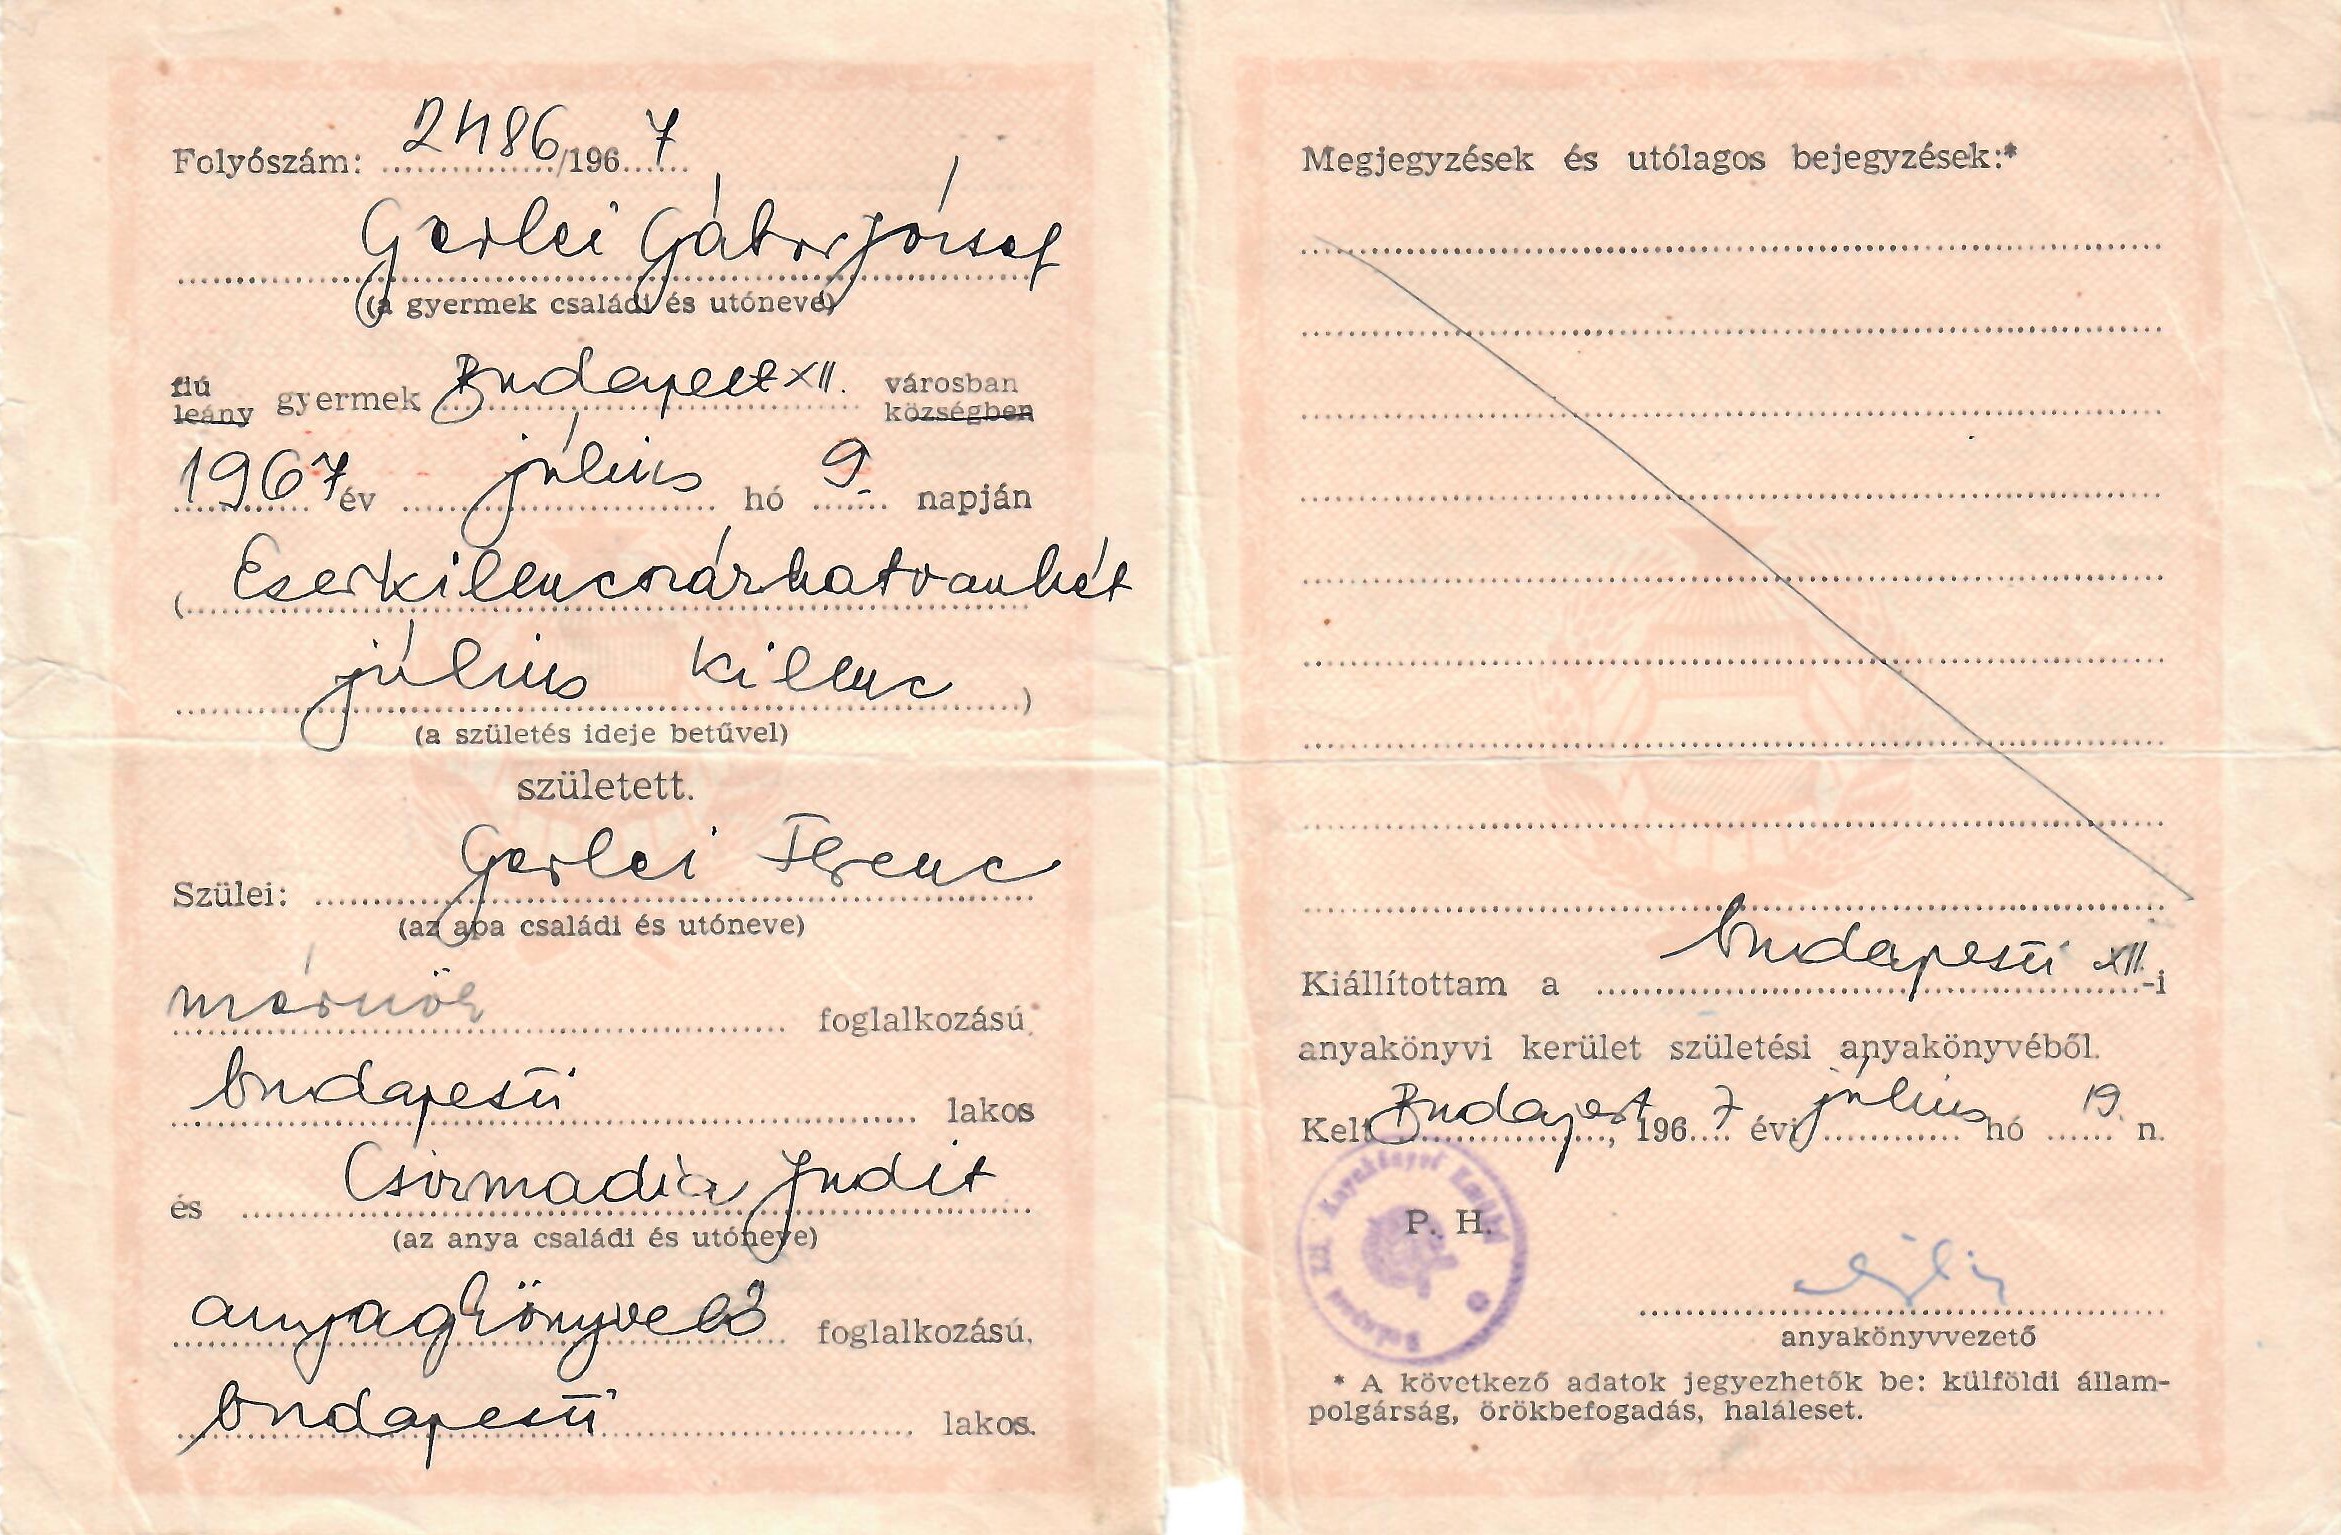 Folyószám: 2486/1967
Gerlei Gábor József
(a gyermek családi és utóneve)
fiú
leány gyermek Budapest XII. városban
községben
1967 év július hó 9. napján
(Ezerkilencszázhatvanhét
július kilenc)
(a születés ideje betűvel)
született.
Szülei: Gerlei Ferenc
(az apa családi és utóneve)
mérnök foglalkozású
budapesti lakos
és Csizmadia Judit
(az anya családi és utóneve)
anyagkönyvelő foglalkozású,
budapesti lakos.
Megjegyzések és utólagos bejegyzések:*
Kiállítottam a budapesti XII.-i
anyakönyvi kerület születési anyakönyvéből.
Kelt Budapest, 1967 évi július hó 19. n.
P. H.
anyakönyvvezető
* A következő adatok jegyezhetők be: külföldi állam-
polgárság, örökbefogadás, haláleset.